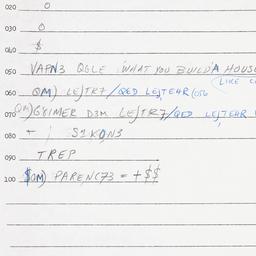 020 0
030 0
040 $
050 VAPN3 QGLE WHAT YOU BUILD A HOUSE
LIKE
060 QM) LEJTR7/QED LEJTEHR (056
070 QM) GYIMER D3M LEJTR7/QED LEJTEHR
080 - ; S1KON3
090 TREP
100 $QM) PARENC73 = +$$